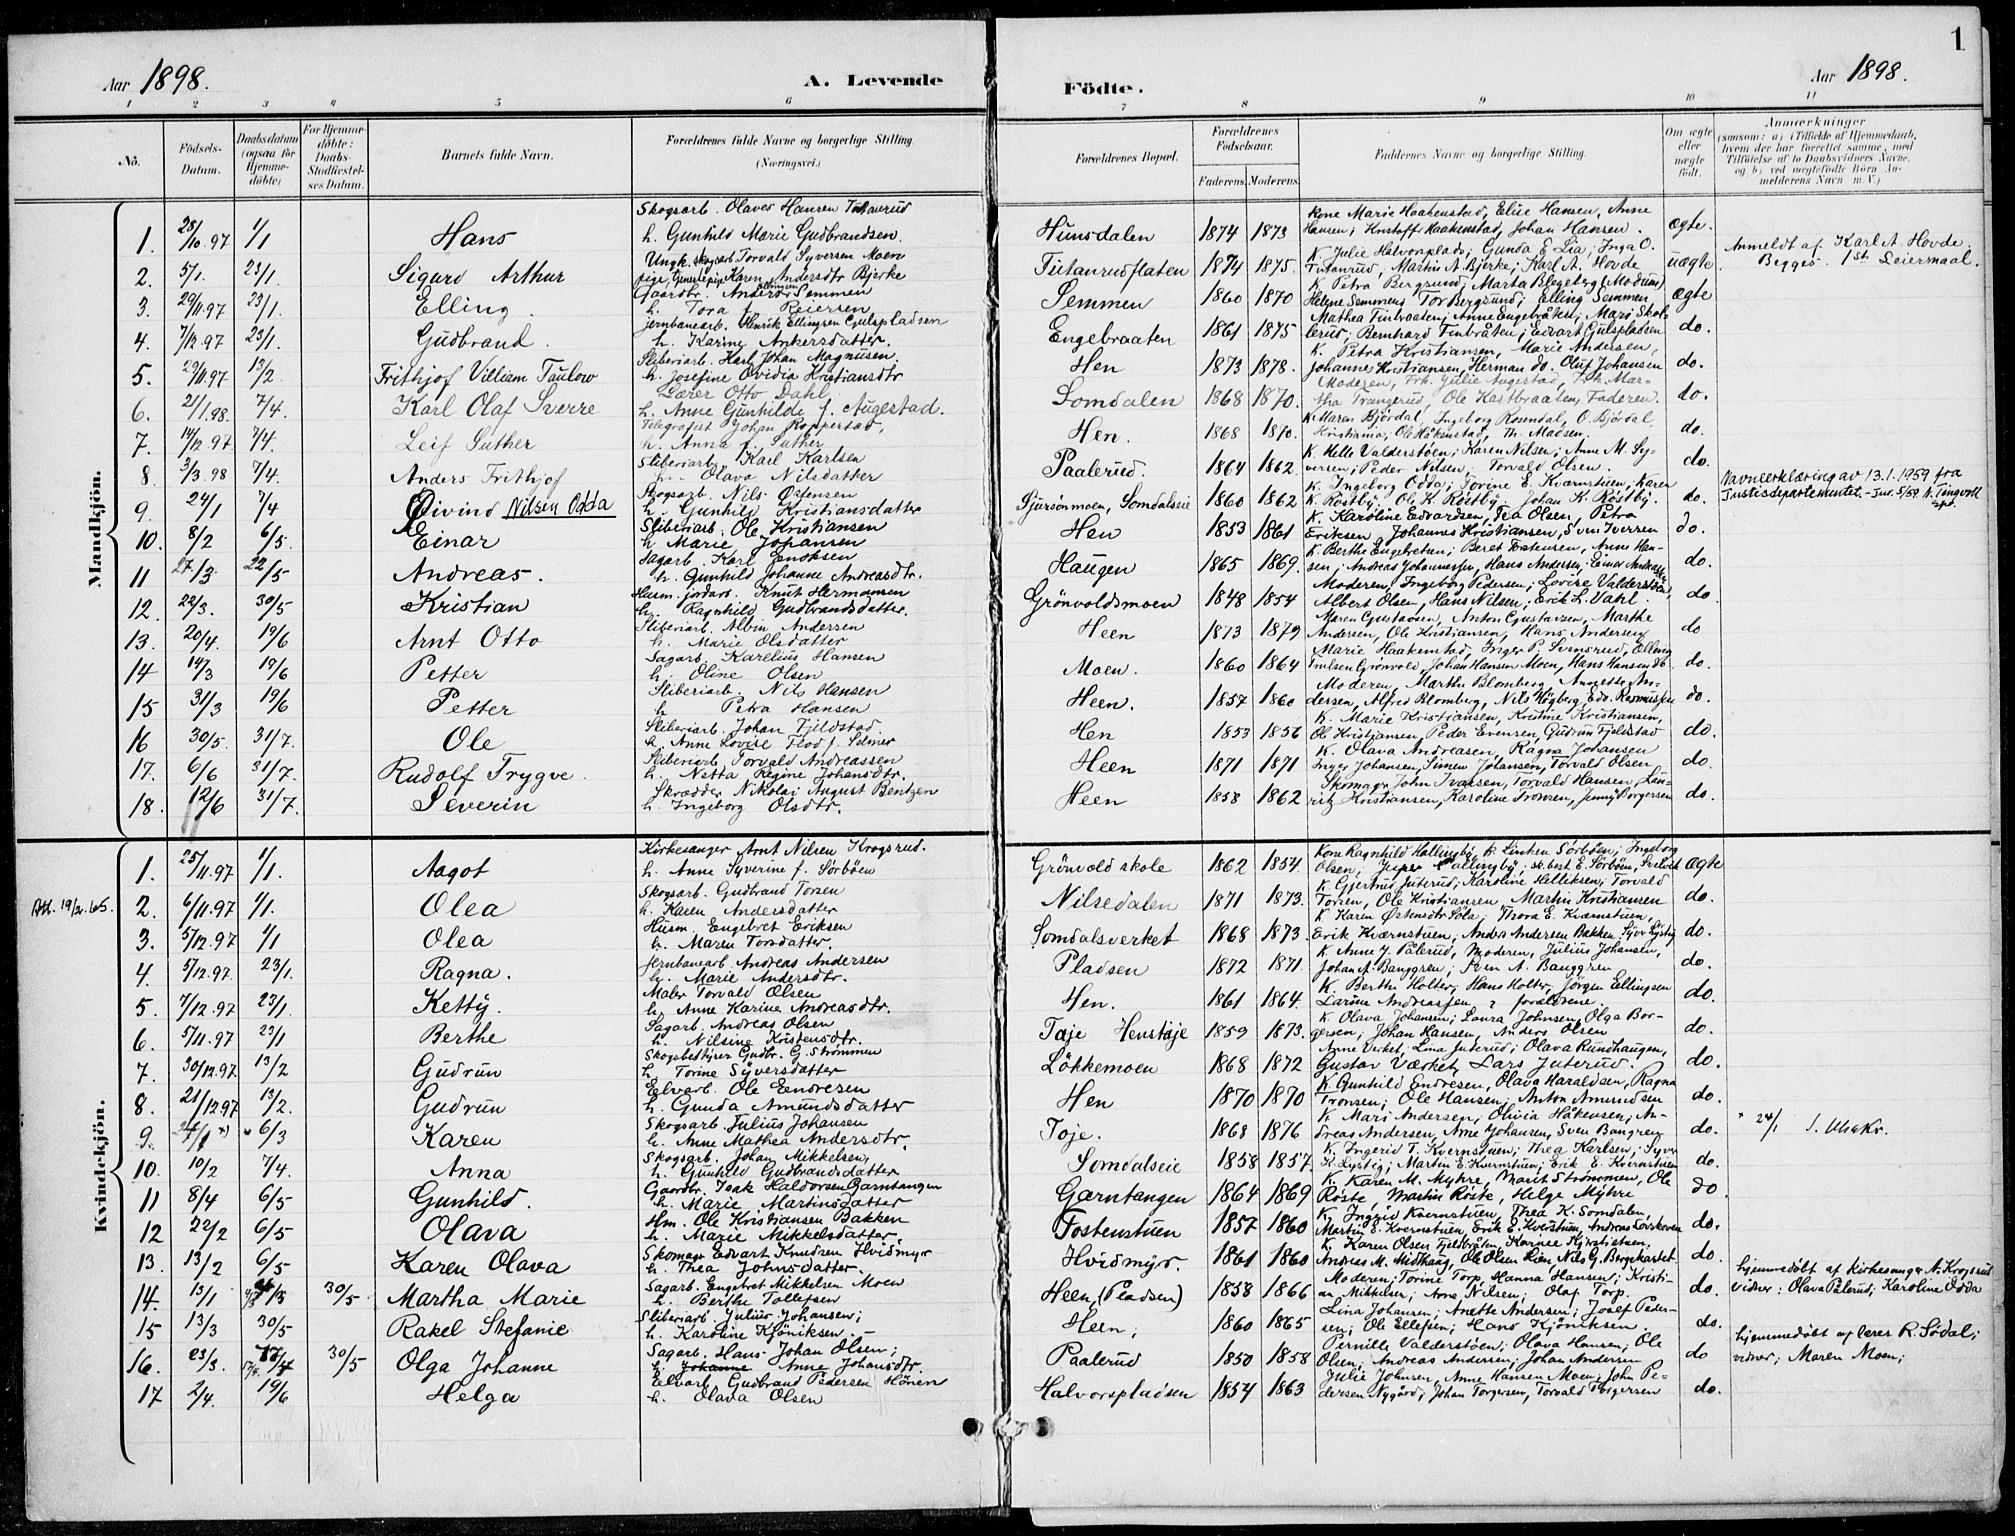 1
Aar 1898. A. Levende Födte. Aar 1898.
1 2 3 4 5 6 7 8 9 10 11
No. Födsels-Datum. Daabsdatum (ogsaa for Hjemmedöbte) For Hjemmedöbte: Daabs-Stadfæstelses Datum. Barnets fulde Navn. Forældrenes fulde Navne og borgerlige Stilling. (Næringsvei.) Forældrenes Bopæl. Forældrenes Födselsaar. Faderens. Moderens. Faddernes Navne og borgerlige Stilling. Om ægte eller uægte födt. Anmærkninger (saasom: a) i Tilfælde af Hjemmedaab, hvem der har forrettet samme, med Tilföielse af to Daabsvidners Navne, og b) ved uægtefödte Börn Anmelderens Navn m. V.)
Mandkjön.
1. 28/10.97 1/1 Hans Skogsarb. Olaves Hansen Tutanrud h. Gunhild Marie Gudbrandsen. Hunsdalen 1874 1873 Kone Marie Haakenstad, Elise Hansen, Anne Hansen; Kristoffer Haakenstad, Johan Hansen. ægte.
2. 5/1. 23/1 Sigurd Arthur Ungk. skogsarb. Torvald Syversen Moen pige, Karen Andersdtr Bjerke Tutanrudflaten 1874 1875. K. Julie Halvorsplads; Gunda E. Lia; Inga O. Tutanrud, Martin A. Bjerke; Karl A. Hovde uægte Anmeldt af Karl A. Hovde. Begges 1ste Leiermaal.
3. 29/11.97 23/1. Elling. Gaardbr. Anders Semmen h. Tora f. Reiersen Semmen 1860 1870 K. Petra Bergsund; Marta Blegeberg (Modum) Helene Semmen; Tor Bergsund; Elling Semmen ægte
4. 7/12.97 23/1. Gudbrand. jernbanearb. Henrik Ellingsen Gulspladsen h. Karine Ankersdatter. Engebraaten 1861 1875 Mathea Finbraaten; Anne Engebråten; Mari Skolerud; Bernhard Finbråten; Edvart Gulspladsen do.
5. 29/11.97 13/2. Frithjof Villiam Taulow Sliberiarb. Karl Johan Magnusen. h. Josefine Ovidia Kristiansdtr Hen 1873 1878. K. Petra Kristiansen, Marie Andersen, Johannes Kristiansen, Herman do. Oluf Johansen do.
6. 2/1.98. 7/4. Karl Olaf Sverre Lærer Otto Dahl, h. Anne Gunhilde f. Augestad. Somdalen 1868 1870. Moderen, Frk. Julie Augestad, Frk. Martha Trangerud, Ole Kastbraaten, Faderen. do.
7. 14/12.97 7/4. Leif Suther Telegrafist Johan Kopperstad, h. Anna f. Suther Hen. 1868 1870. K. Maren Björdal, Ingeborg Rosendal, O. Björdal, Kristiania; Ole Håkenstad, Th. Madsen. do.
8 3/3 98 7/4. Anders Frithjof Sliberiarb. Karl Karlsen h. Olava Nilsdatter Paalerud. 1864 1862 K. Helle Valderstöen; Karen Nilsen; Anne M. Syversen; Peder Nilsen; Torvald Olsen. do.
9. 24/1 7/4 Öivind Nilsen Odda Skogsarb. Nils Østensen h. Gunhild Kristiansdatter Sjursönmoen, Somdalseie 1860 1862 K. Ingeborg Odda; Torine E. Kværnstuen; Karen K. Röstby; Ole K. Röstby. Johan K. Röstby. do. Navneerklæring av 13.1.1959 fra Justisdepartementet - Jnr. 5/59 N. Tingvoll spr.
10. 8/2 6/5. Einar Sliberiarb. Ole Kristiansen h. Marie Johansen Hen 1853 1861 K. Karoline Edvardsen, Tea Olsen, Petra Eriksen, Johannes Kristiansen, Sven Iversen do.
11 27/3 22/5 Andreas. Sagarb. Karl Enoksen h. Gunhild Johanne Andreasdtr. Haugen 1865 1869. K. Berthe Engebretsen; Beret Torstensen, Anne Hansen; Andreas Johannessen, Hans Andersen, Einar Andreassen do.
12. 22/3. 30/5 Kristian Husm. jordarb. Knut Hermansen h. Ragnhild Gudbrandsdatter. Grönvoldsmoen 1848 1854 Moderen, Ingeborg Pedersen; Lovise Valderstöen, Albert Olsen, Hans Nilsen, Erik L. Vahl. do.
13. 20/4. 19/6 Arnt Otto Sliberiarb. Albin Andersen h. Marie Olsdatter Heen 1873 1879 Maren Gustavsen, Anton Gustavsen, Marthe Andersen, Ole Kristiansen, Hans Andersen do
14 14/3 19/6 Petter Sagarb. Karelius Hansen h. Oline Olsen Moen. 1860 1864 Marie Haakenstad, Inger P. Semsrud, Elling Trulsen Grönvold, Johan Hansen Moen, Hans Hansen do do.
15 31/3 19/6 Petter Sliberiarb. Nils Hansen h. Petra Hansen Heen. 1857 1860 Moderen, Marthe Blomberg, Annette Andersen, Alfred Blomberg, Nils Högberg, Edv. Rasmussen do.
16 30/5. 31/7. Ole Sliberiarb. Johan Fjeldstad h. Anne Lovise Flod f. Selmer Hen 1853 1856 K. Marie Kristiansen, Kristine Kristiansen, Ole Kristiansen, Peder Evensen, Gudrun Fjeldstad do.
17. 6/6 31/7. Rudolf Trygve. Sliberiarb. Torvald Andreassen h. Netta Regine Johansdtr. Heen 1871 1871 K. Olava Andreasen, Ragna Johansen Inger Johansen, Simen Johansen, Torvald Olsen do.
18. 12/6 31/7. Severin Skrædder Nikolai August Bentzen h. Ingeborg Olsdtr. Heen 1858 1862 Skomagr John Ivarsen, Torvald Hansen, Lauritz Kristiansen, Karoline Tronsen, Jenny Borgersen do.
Kvindekjön.
1. 25/11.97 1/1. Aagot Kirkesanger Arnt Nilsen Krogsrud. h. Anne Syverine f. Sörböen Grönvold skole 1862 1854. Kone Ragnhild Hallingby, K. Linken Sörböen; Ingeborg Olsen, Jesper Hallingby; sk.best. E. Sörböen, Svelvik ægte
Att. 19/2.65. 2. 6/11.97 1/1. Olea Skogsarb. Gudbrand Torsen h. Karen Andersdatter Nilsedalen 1871 1873. K. Gjertrud Juterud; Karoline Helliksen; Torvald Torsen, Ole Kristiansen Martin Kristiansen do.
3. 5/12.97 1/1 Olea Husm. Engebret Eriksen h. Maren Torsdatter. Somdalsverket 1868 1873. K. Karen Østensdtr Söla; Thora E. Kværnstuen, Erik Kværnstuen, Anders Andersen Bakken Syver Lystig do.
4. 5/12.97. 23/1. Ragna. Jernbanearb. Andreas Andersen h. Marie Andersdtr. Pladsen 1872 1871. K. Anne J. Pålerud, Moderen, Julius Johansen, Johan A. Banggren; Sven A. Banggren do.
5. 7/12.97 23/1 Ketty. Maler Torvald Olsen h. Anne Karine Andreasdtr. Hen. 1861 1864. K. Berthe Holter; Hans Holter, Jörgen Ellingsen Larine Andreassen & forældrene. do.
6. 5/11.97 23/1 Berthe Sagarb. Andreas Olsen h. Nilsine Kristensdtr. Toje Henstoje 1859 1873. K. Olava Johansen; Laura Johnsen, Olga Borgersen; Johan Hansen, Anders Olsen do.
7. 30/12.97 13/2 Gudrun Skogsbestyrer Gudbr. G. Strömmen h. Torine Syversdatter Lökkemoen 1868 1872 Anne Verket; Lina Juterud; Olava Rundhaugen, Gustav Værket, Lars Juterud. do.
8. 21/12.97 13/2. Gudrun Eelvarb. Ole Eendresen h. Gunda Amundsdatter Hen 1870 1870 K. Gunhild Endresen, Olava Haraldsen, Ragna Tronsen; Ole Hansen; Anton Amundsen do.
9. 6/3 Karen Skogsarb. Julius Johansen h. Anne Mathea Andersdtr. Toje. 1868 1876 K. Mari Andersen; Olivia Håkensen; Andreas Andersen, Arne Johansen, Sven Bangren do. * 24/1
10. 10/2 7/4. Anna Skogsarb. Johan Mikkelsen, h. Gunhild Gudbrandsdatter Somdalseie 1858 1857. K. Ingerid T. Kvernstuen; Thea Karlsen; Syver K. Lystig; Martin E. Kvernstuen; Erik E. Kvernstuen do.
11 8/4 6/5 Gunhild. Gaardbr. Isak Haldorsen Garntangen h. Marie Martinsdatter Garntangen 1864 1869 K. Karen M. Myhre, Marit Strömmen, Ole Röste, Martin Röste, Helge Myhre do
12 22/2 6/5 Olava Hm. Ole Kristiansen Bakken h. Marie Mikkelsdatter, Tostenstuen 1857 1860 K. Ingrid Kvernstuen, Thea K. Somdalen, Martin E. Kvernstuen, Erik E. Kvernstuen, Andreas do.
13. 13/2 6/5 Karen Olava Skomagr Edvart Knudsen Hvidmyr h. Thea Johnsdatter. Hvidmyr. 1861 1860 K. Karen Olsen Fjeldbråten, Karine Kristiansen, Andreas M. Midthaug, Ole Olsen Lien, Nils G. Bergekastet do.
14. 13/1 4/3 30/5 Martha Marie Sagarb. Engebret Mikkelsen Moen h. Berthe Tollefsen Heen (Pladsen) 1858 1866 Moderen; Torine Torp, Hanna Hansen; Kristian Mikkelsen; Arne Nilsen; Olaf Torp. do. hjemmedöbt af Kirkesanger A. Krogsrud vidner: Olava Pålerud; Karoline Odda
15 13/3 30/5 Rakel Stefanie Sliberiarb. Julius Johansen; h. Karoline Kjöniksen. Heen; 1860 1865 Lina Johansen; Anette Andersen; Josef Pedersen; Ole Ellefsen; Hans Kjöniksen. do.
16. 23/3. 17/4 30/5 Olga Johanne Sagarb. Hans Johan Olsen; h. Johanne Anne Johansdtr. Paalerud 1850 1858 Pernille Valderstöen; Olava Hansen; Ole Olsen; Andreas Andersen; Johan Andersen do hjemmedöbt af lærer R. Södal; vidner; Maren Moen;
17 2/4. 19/6 Helga Eelvarb. Gudbrand Pedersen Hönen h. Olava Olsen Halvorspladsen 1854 1863 Julie Johnsen, Anne Hansen Moen; John Pedersen Nygård; Johan Torgersen, Torvald Torgersen do.